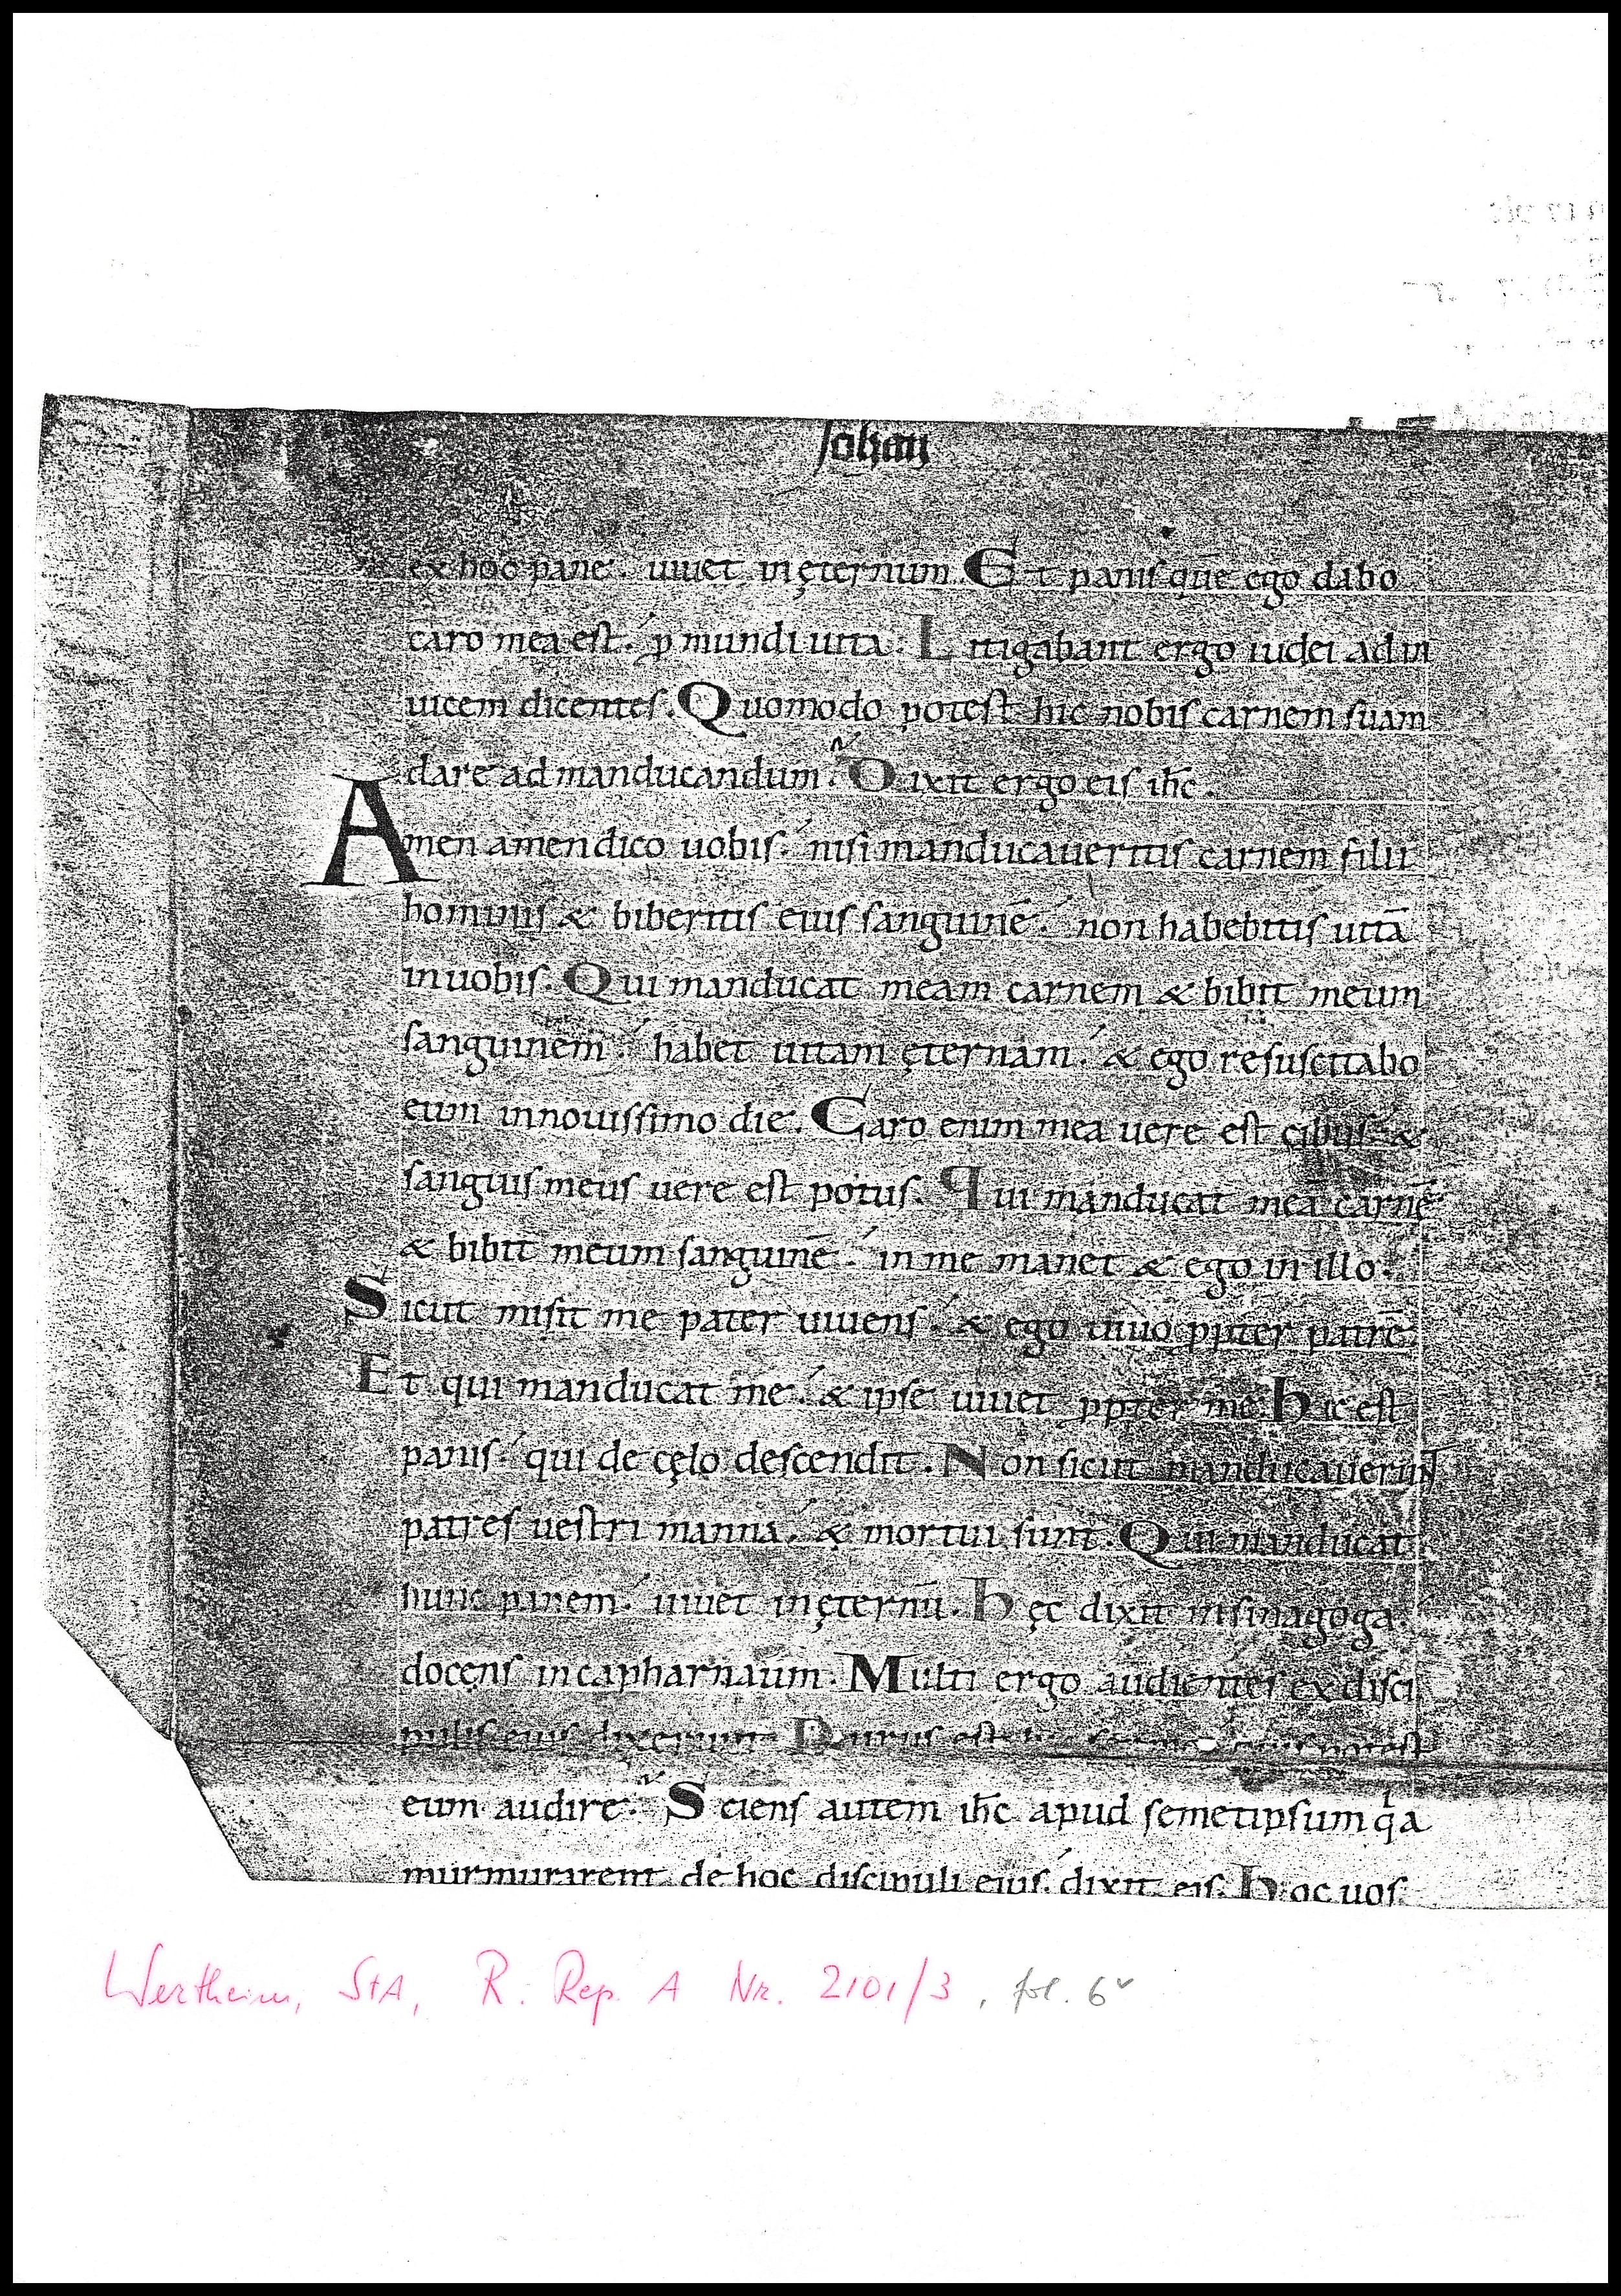 Johan
ex hoc pane. uiuet in ęternum. Et panis quē ego dabo
caro mea est. ꝓ mundi uita. Litigabant ergo iudei ad in
uicem dicentes. Quomodo potest hic nobis carnem suam
dare ad manducandum. Dixit ergo eis ihc̄.
Amen amen dico uobis. nisi manducaueritis carnem filii
hominis & biberitis eius sanguinē. non habebitis uitā
in uobis. Qui manducat meam carnem & bibit meum
sanguinem. habet uitam ęternam. & ego resuscitabo
eum in nouissimo die. Caro enim mea uere est cibus. &
sanguis meus uere est potus. Qui manducat meā carnē
& bibit meum sanguinē. in me manet & ego in illo.
Sicut misit me pater uiuens. & ego uiuo ꝓpter patrē
Et qui manducat me. & ipse uiuet ꝓpter me. Hic est
panis. qui de cęlo descendit. Non sicut manducauerunt
patres uestri manna. & mortui sunt. Qui manducat
hunc panem. uiuet in ęternū. Hęc dixit in sinagoga.
docens in capharnaum. Multi ergo audientes ex disci
pulis eius dixerunt. Durus est hic sermo potest
eum audire. Sciens autem ihc̄ apud semetipsum qͥa
murmurarent de hoc discipuli eius. dixit eis. Hoc uos
Wertheim, StA, R. Rep. A Nr. 2101/3, fol. 6v